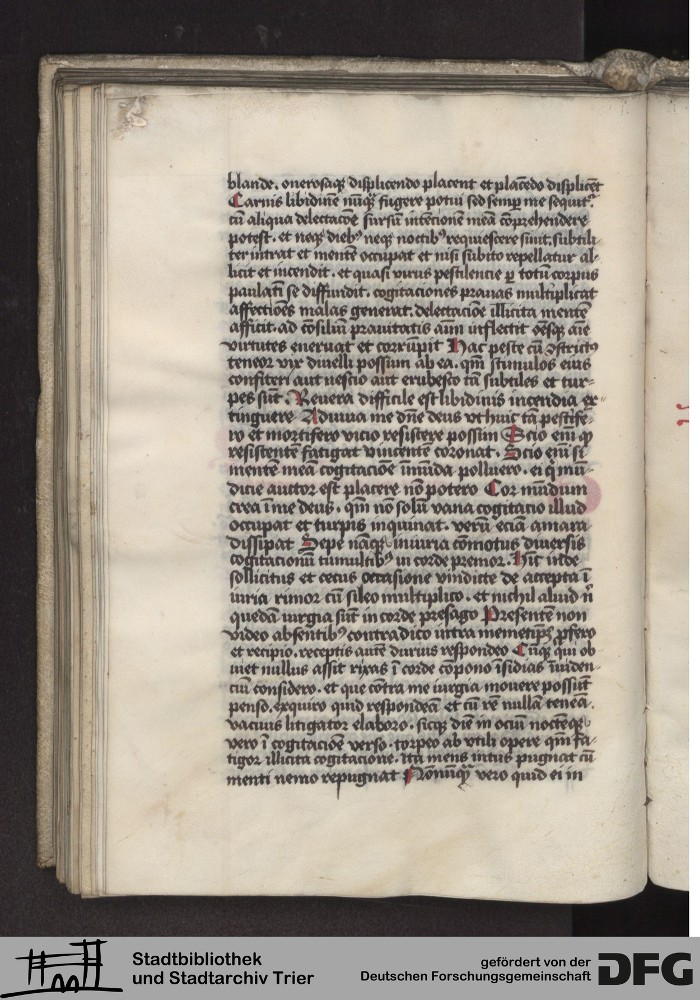 blande. onerosaqꝫ displicendo placent et placēdo displicēt
Carnis libidinē nūqͣ fugere potui sed semꝑ me sequitᷣ
cū aliqua delectacōe sursū intēcionem meā cōprehendere
potest. et neqꝫ diebꝰ neqꝫ noctibꝰ requiescere sinit. subtili
ter intrat et mentē occupat et nisi subito repellatur al-
licit et incendit. et quasi virus pestilencie ꝑ totū corpus
paulatī se diffundit. cogitaciones prauas multiplicat
affectiōes malas generat. delectaciōe illicita mentē
afficit. ad cōsiliū prauitatis aīm inflectit oēsqꝫ aīe
virtutes eneruat et corrūpit Hac peste cū ꝯstrictꝰ
teneor vix diuelli possum ab ea. qm̄ stimulos eius
confiteri aut nescio aut erubesco tā subtiles et tur-
pes sūt. Reuera difficile est libidinis incendia ex-
tinguere Adiuua me dn̄e deus vt huic tā pestife-
ro et mortifero vicio resistere possim Scio eniꝫ ꝙ
resistentē fatigat vincentē coronat. Scio eniꝫ si
mentē meā cogitaciōe īmūda polluero. ei q̇ mū-
dicie auctor est placere nō potero Cor mūdum
crea ī me deus. qm̄ nō solū vana cogitacio illud
occupat et turpis inquinat. verū eciā amara
dissipat Sepe nāqꝫ iniuria cōmotus diuersis
cogitacionū tumultibꝰ in corde premor. Hīc inde
sollicitus et cecus occasione vindicte de accepta ī
iuria rimor cū sileo multiplico. et nichil aliud n̄
quedā iurgia sūt in corde presago Presentē non
video absentibꝰ contradico intra memetip̄ꝫ ꝓfero
et recipio. receptis autē durius respondeo Cūqꝫ qui ob
uiet nullus assit rixas ī corde cōpono īsidias īuiden-
ciū considero. et que cōtra me iurgia mouere possūt
penso. exquiro quid respondeā et cū rē nullā teneā.
vacuus litigator elaboro. sicqꝫ diē in ociū noctēqꝫ
vero ī cogitaciōe verso. torpeo ab vtili opere qm̄ fa-
tigor illicita cogitacione. ita mens intus pugnat cū
menti nemo repugnat Nōnūqͣ vero quid ei in
Stadtbibliothek
und Stadtarchiv Trier
gefördert von der
Deutschen Forschungsgemeinschaft
DFG